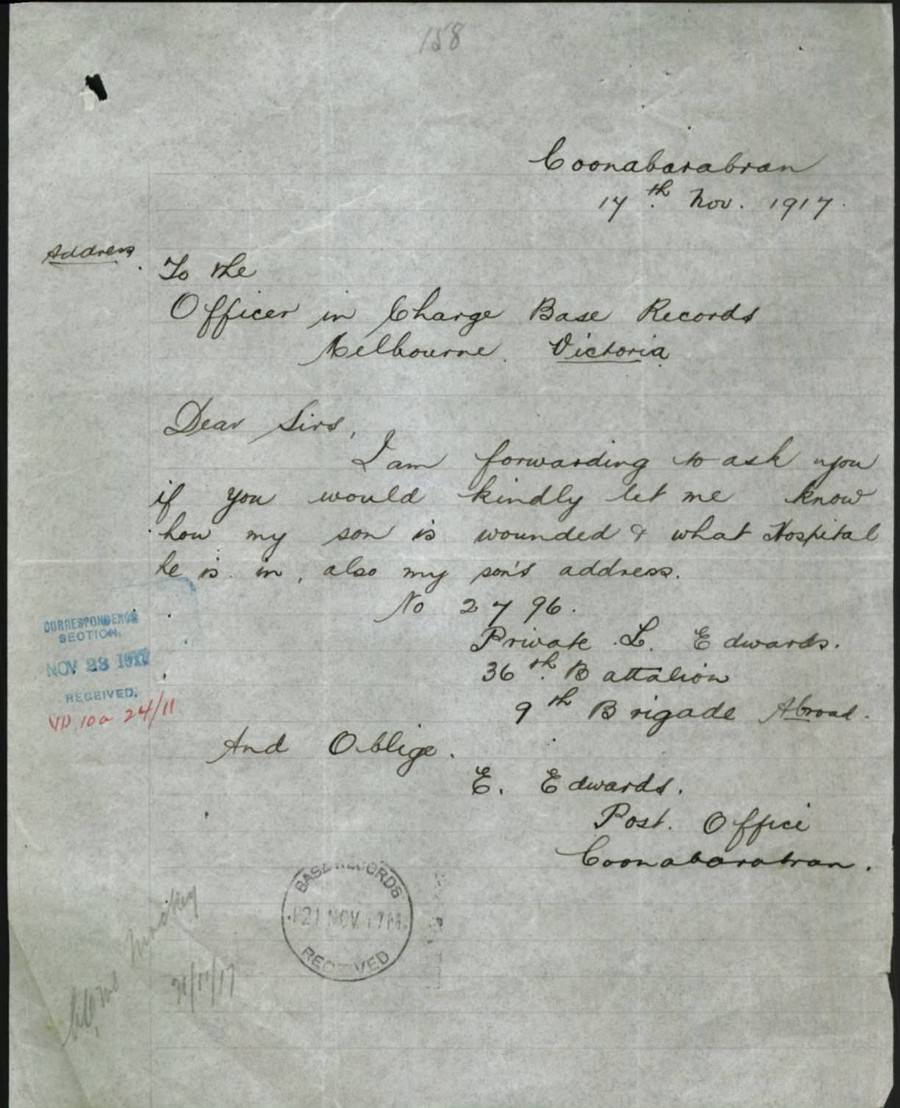 158
Coonabarabran
17th Nov. 1917.
Address.
To the
Officer in Charge Base Records
Melbourne. Victoria
Dear Sirs,
I am forwarding to ask you
if you would kindly let me know
how my son is wounded & what Hospital
he is in, also my son's address.
No 2796.
Private L. Edwards.
36th Battalion
9th Brigade Abroad.
And Oblige.
E. Edwards.
Post. Office
Coonabarabran.
CORRESPONDENCE
SECTION.
NOV 23 1917
RECEIVED.
24/11
BASE RECORDS
21 NOV 1917
RECEIVED
21/11/17